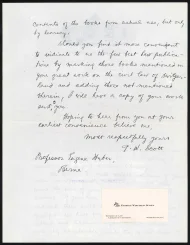 contents of the books from actual use, but only
by hearing.
Would you find it more convenient
to indicate to me the few best law publica-
tions by marking those mentioned in
your great work on the civil law of Switzer-
land and adding those not mentioned
therein, I will have a copy of your work
send you.
Hoping to hear from you at your
earliest convenience believe me,
most respectfully yours
Scott
Professor Eugene Huber,
Berne